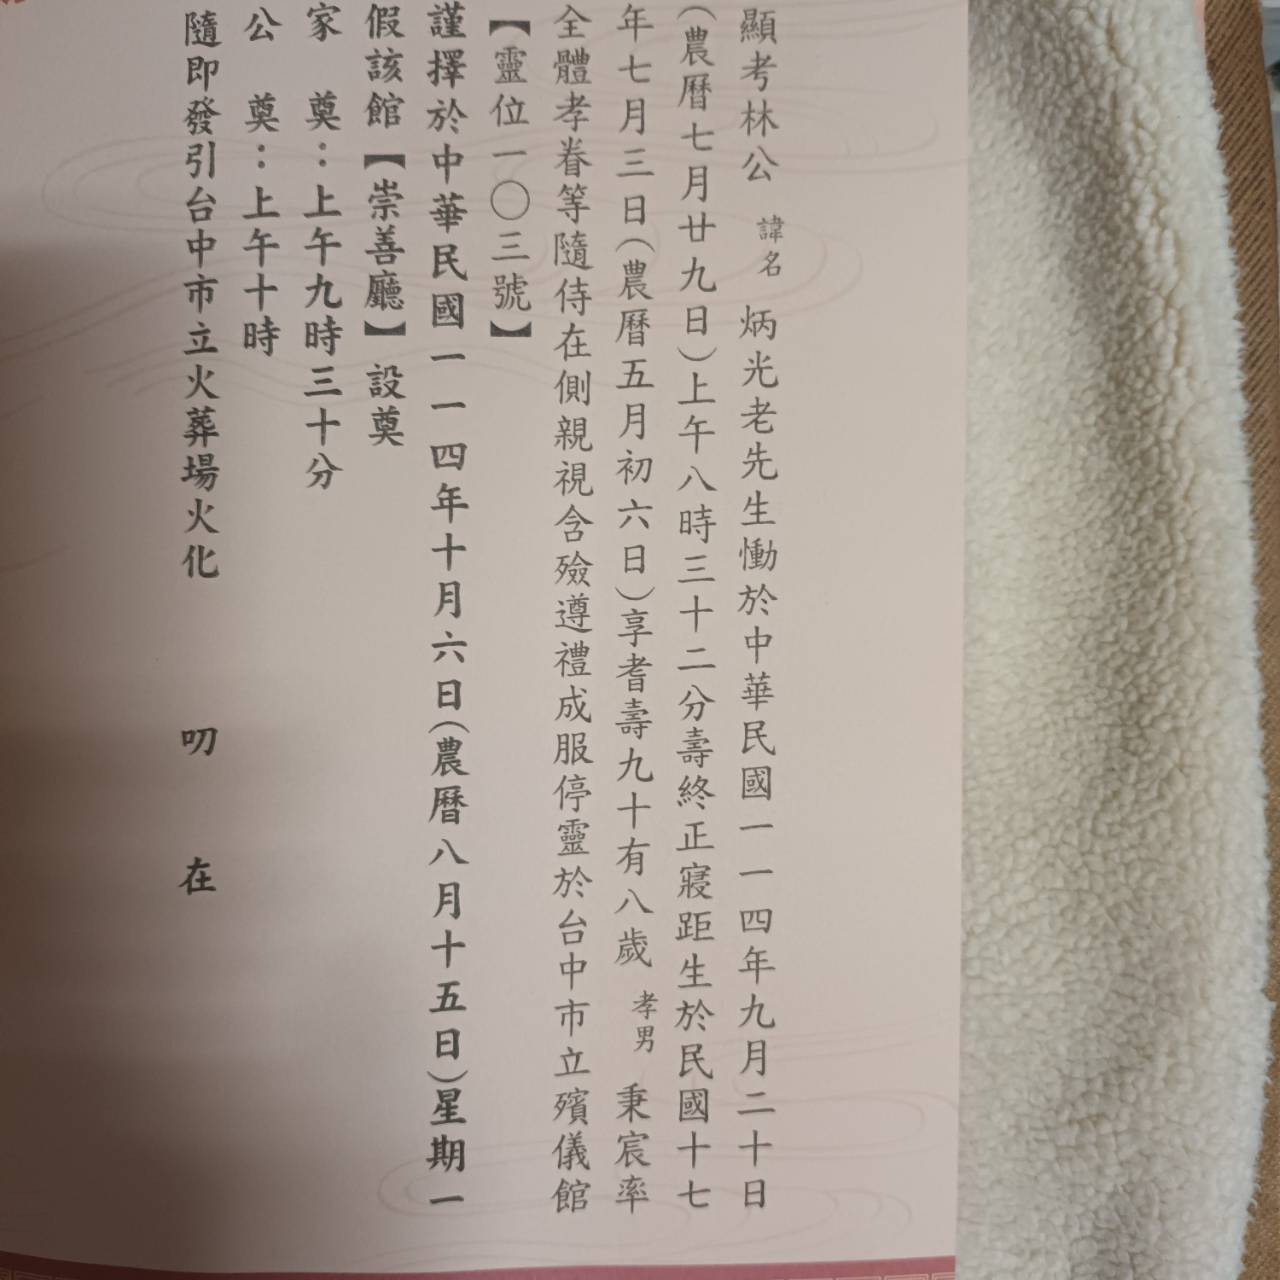 顯考林公 諱名 炳光老先生慟於中華民國一一四年九月二十日
(農曆七月廿九日)上午八時三十二分壽終正寢距生於民國十七
年七月三日(農曆五月初六日)享耆壽九十有八歲 孝男 秉宸率
全體孝眷等隨侍在側親視含殮遵禮成服停靈於台中市立殯儀館
【靈位一〇三號】
謹擇於中華民國一一四年十月六日(農曆八月十五日)星期一
假該館【崇善廳】設奠
家 奠：上午九時三十分
公 奠：上午十時
隨即發引台中市立火葬場火化 叨 在